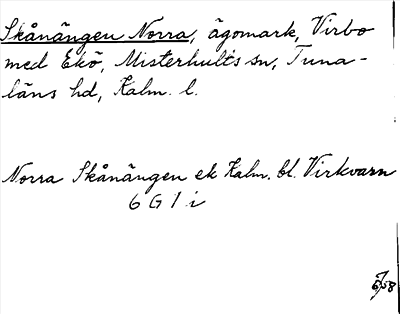 Skånängen Norra, ägomark, Virbo
med Ekö, Misterhults sn, Tuna-
läns hd, Kalm. l.
Norra Skånängen ek Kalm. bl. Virkvarn
6 G 1 i